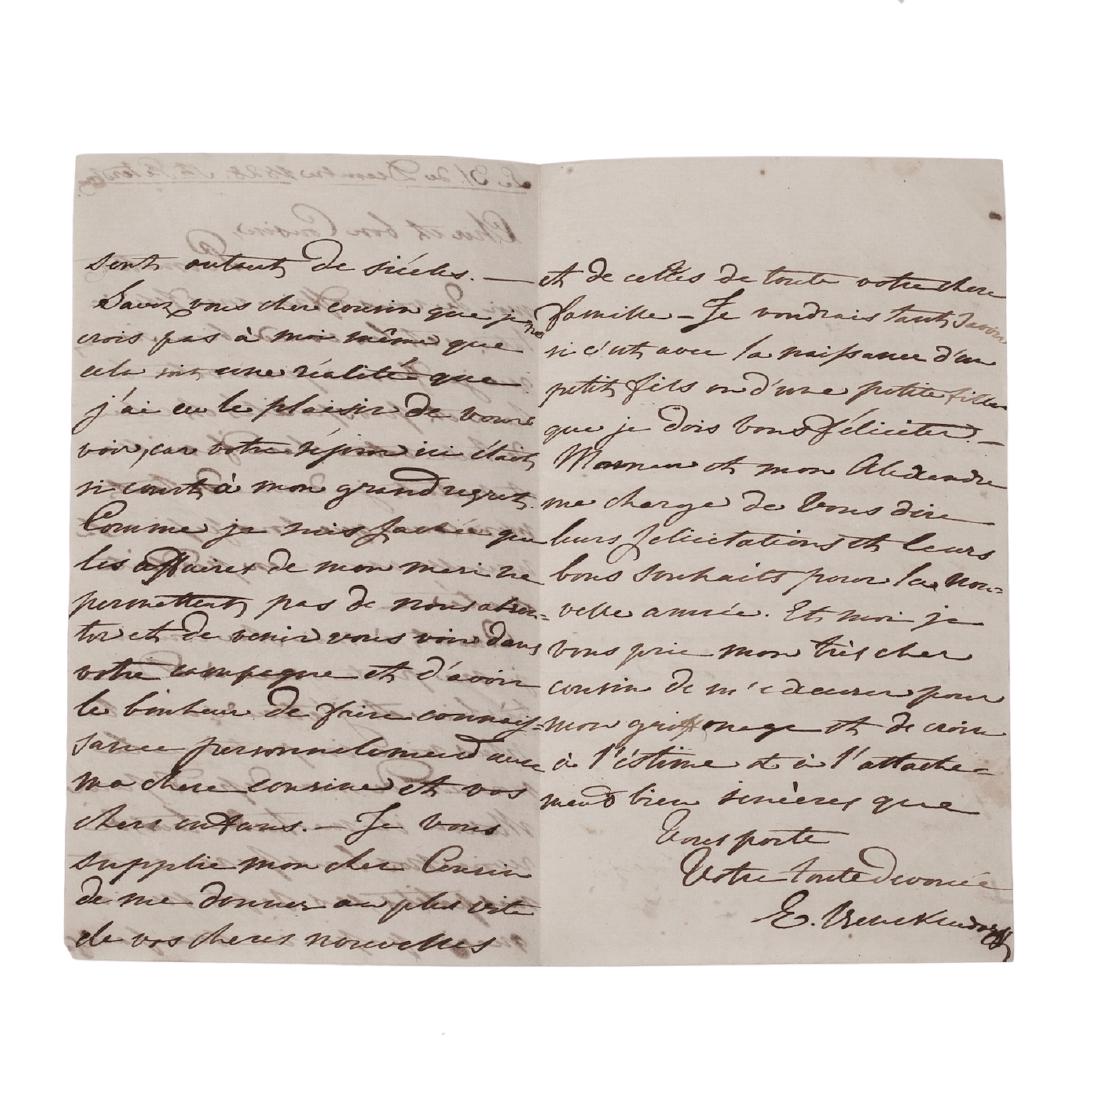 sont autant de siécles. —
Savez vous cher cousin que je ne
crois pas à moi même que
cela soit une réalité que
j'ai eu le plaisir de vous
voir, car votre séjour ici étoit
si court à mon grand regret.
Comme je suis fachée que
les affaires de mon mari ne
permettent pas de nous absen-
ter et de venir vous voir dans
votre campagne et d'avoir
le bonheur de faire connais-
sance personnellement avec
ma chere cousine et vos
chers enfans. — Je vous
supplie mon cher Cousin
de me donner au plus vite
de vos cheres nouvelles
et de celles de toute votre chere
famille — Je voudrais tant savoir
si c'est avec la naissance d'un
petit fils ou d'une petite fille
que je dois vous féliciter —
et mon Alexandre
me charge de vous dire
leurs felicitations et leurs
bons souhaits pour la nou-
velle année. Et moi je
vous prie mon très cher
cousin de m'excuser pour
mon griffonage et de croire
à l'éstime et à l'attache-
ment bien sincères que
vous porte
Votre toute devouée
E. Benckendorff
Le 31 de Decembre 1828 St. Petersbg.
Cher et bon Cousin